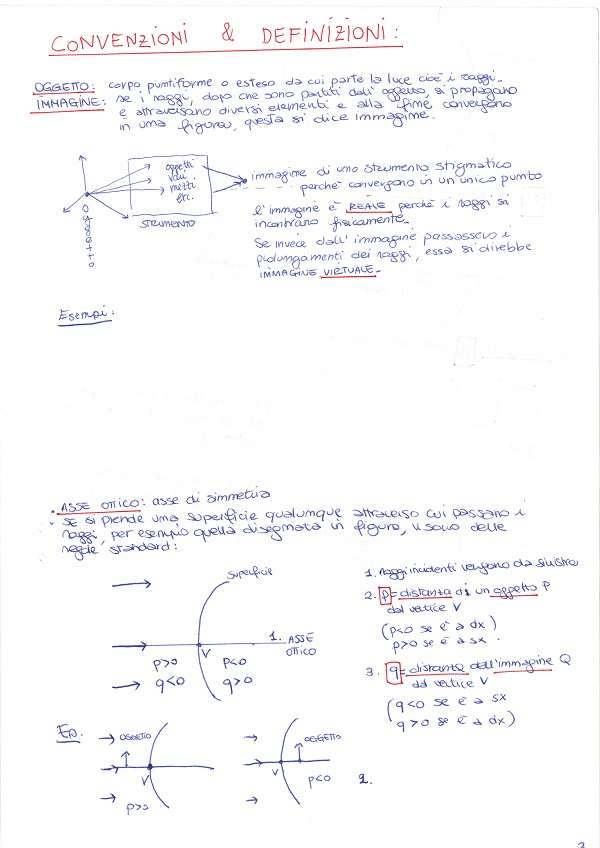 CONVENZIONI & DEFINIZIONI:
OGGETTO: corpo puntiforme o esteso da cui parte la luce cioè i raggi.
IMMAGINE: se i raggi, dopo che sono partiti dall'oggetto, si propagano
e attraversano diversi elementi e alla fine convergono
in una figura, questa si dice immagine.
oggetti
vari
mezzi
etc.
STRUMENTO
Oggetto
immagine di uno strumento stigmatico
perché convergono in un unico punto
l'immagine è REALE perché i raggi si
incontrano fisicamente.
Se invece dall'immagine passassero i
prolungamenti dei raggi, essa si direbbe
IMMAGINE VIRTUALE.
Esempi:
• ASSE OTTICO: asse di simmetria
• Se si prende una superficie qualunque attraverso cui passano i
raggi, per esempio quella disegnata in figura, vi sono delle
regole standard:
superficie
1. ASSE
OTTICO
V
p>0 p<0
q<0 q>0
1. raggi incidenti vengono da sinistra
2. p = distanza di un oggetto P
dal vertice V
(p<0 se è a dx)
p>0 se è a sx.
3. q = distanza dell'immagine Q
dal vertice V
(q<0 se è a sx
q>0 se è a dx)
Es.
OGGETTO
V
p>0
OGGETTO
V
p<0
2.